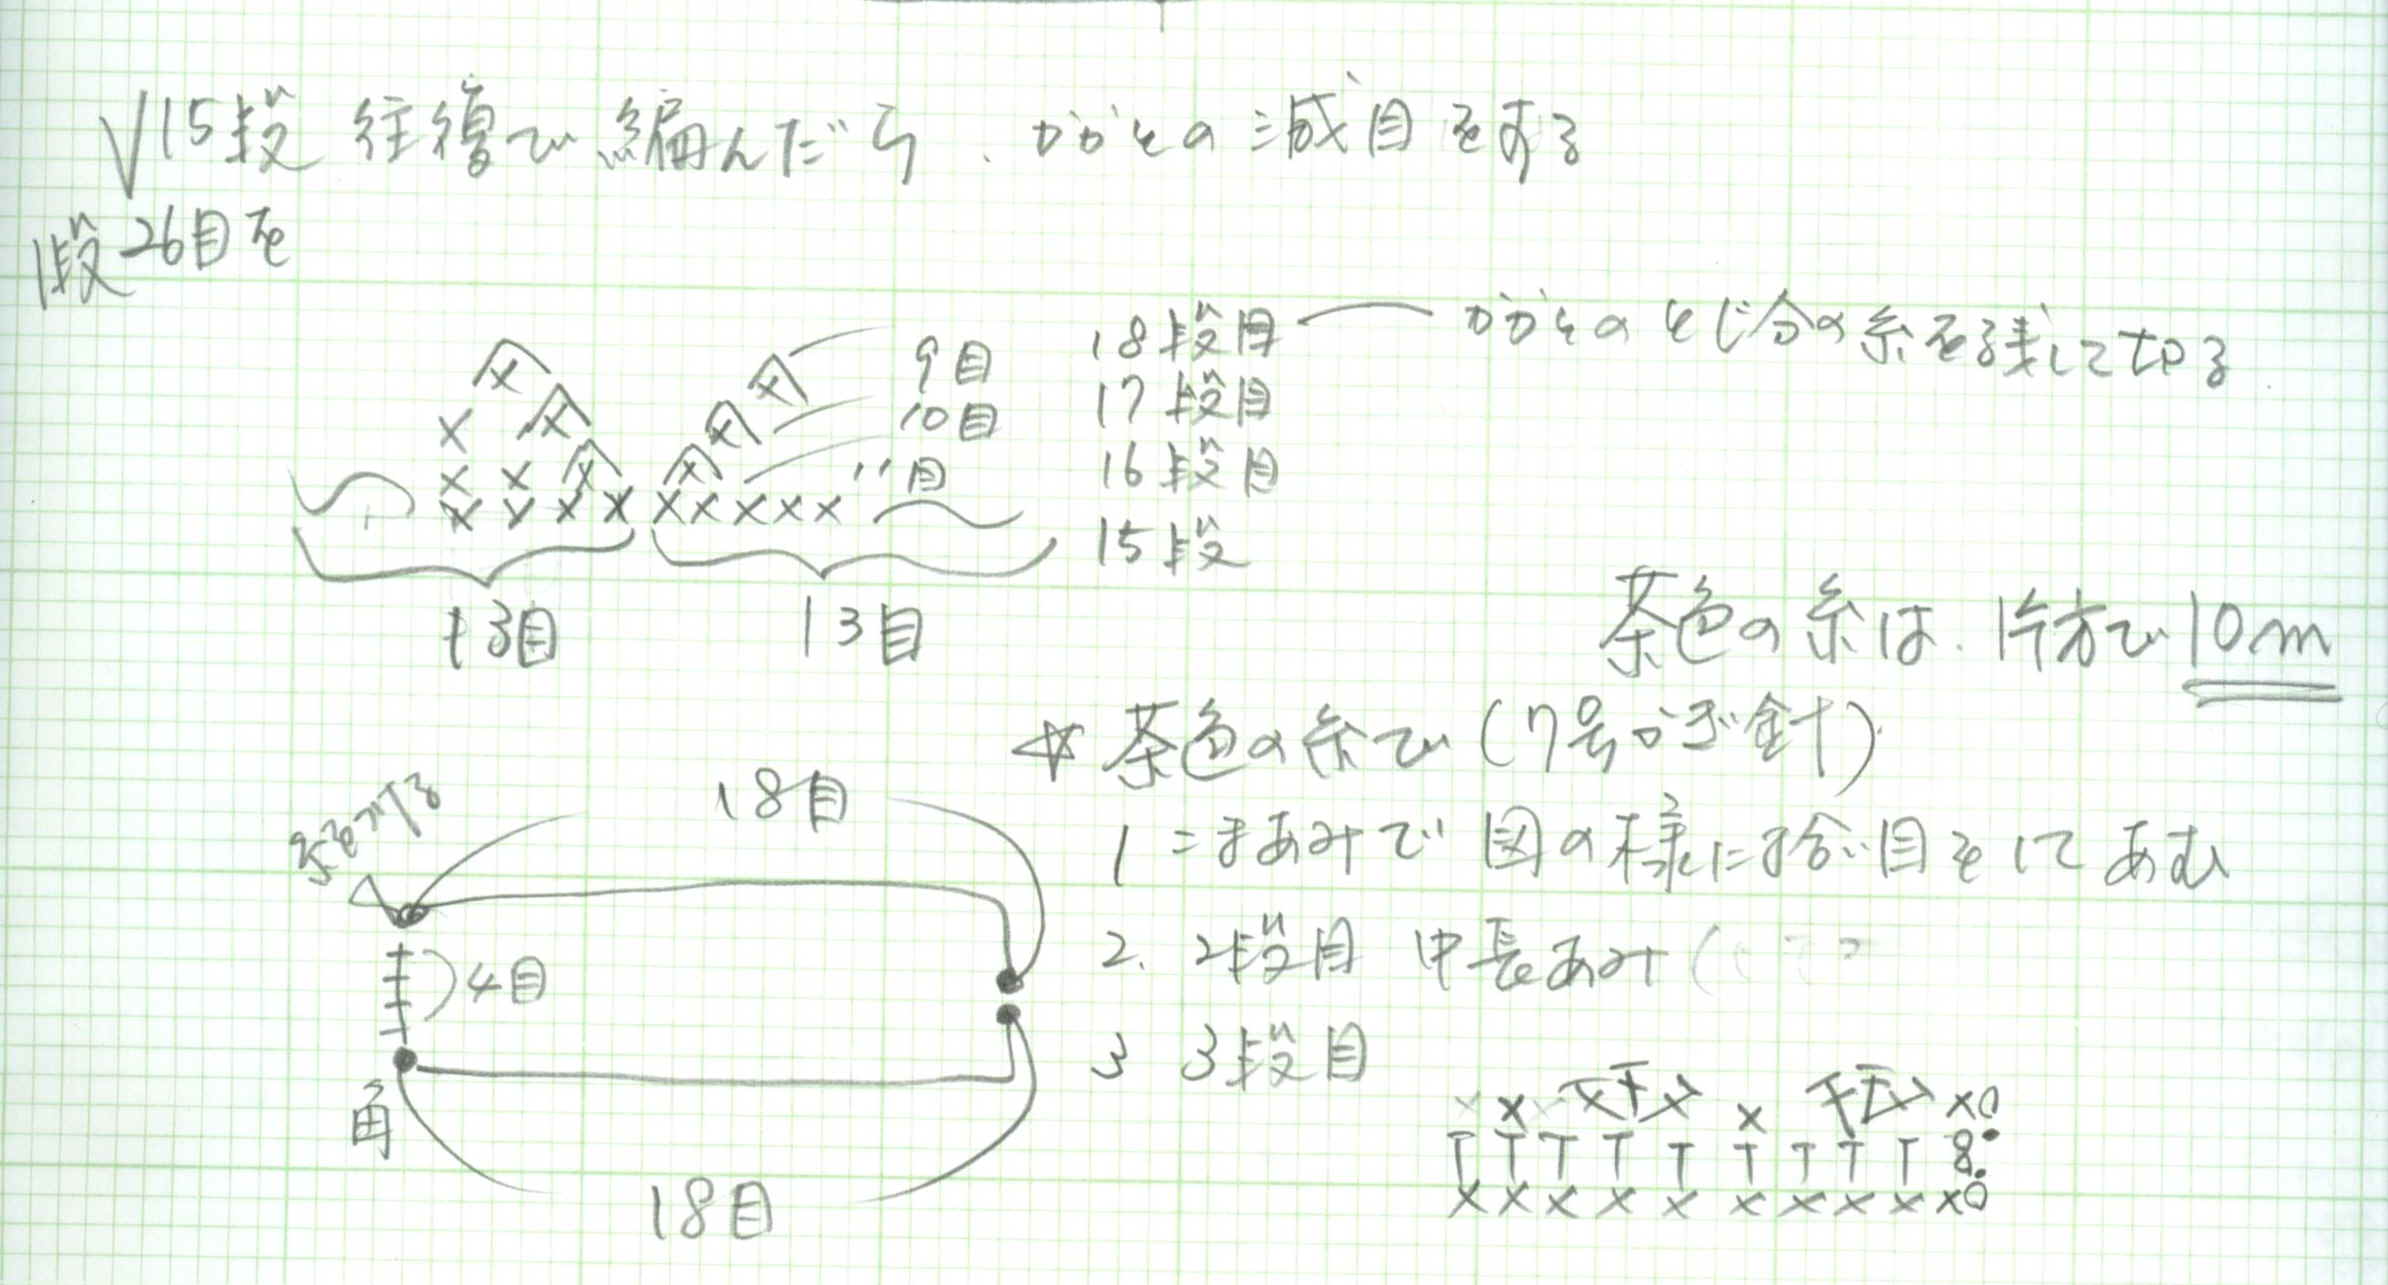 √15段 往復で編んだら、かかとの減目をする
1段26目を
18段目 かかとのとじ分の糸を残して切る
9目
17段目
10目
16段目
11目
15段
13目 13目
茶色の糸は、片方で10m
☆茶色の糸で(7号かぎ針)
18目
糸を付ける
1 こまあみで図の様に拾い目をしてあむ
2. 2段目 中長あみ(
4目
3 3段目
角
18目